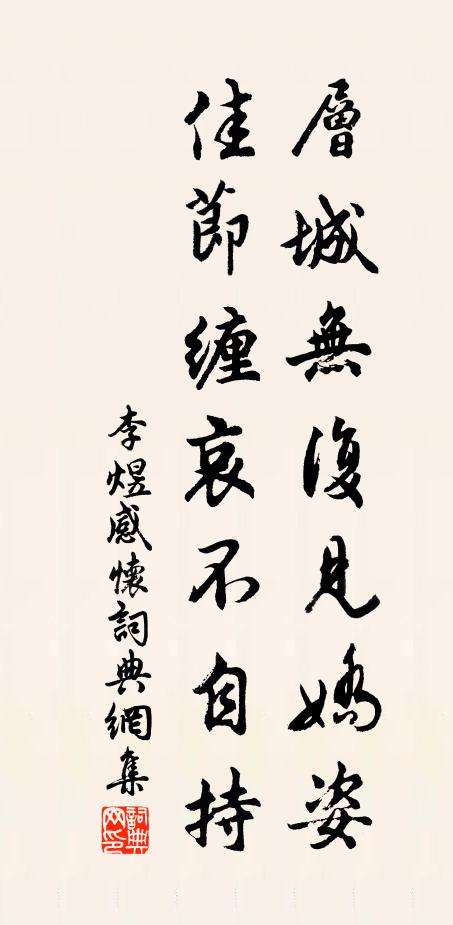 層城無復見嬌姿
佳節纏哀不自持
李煜感懷詞典網集
詞典網印